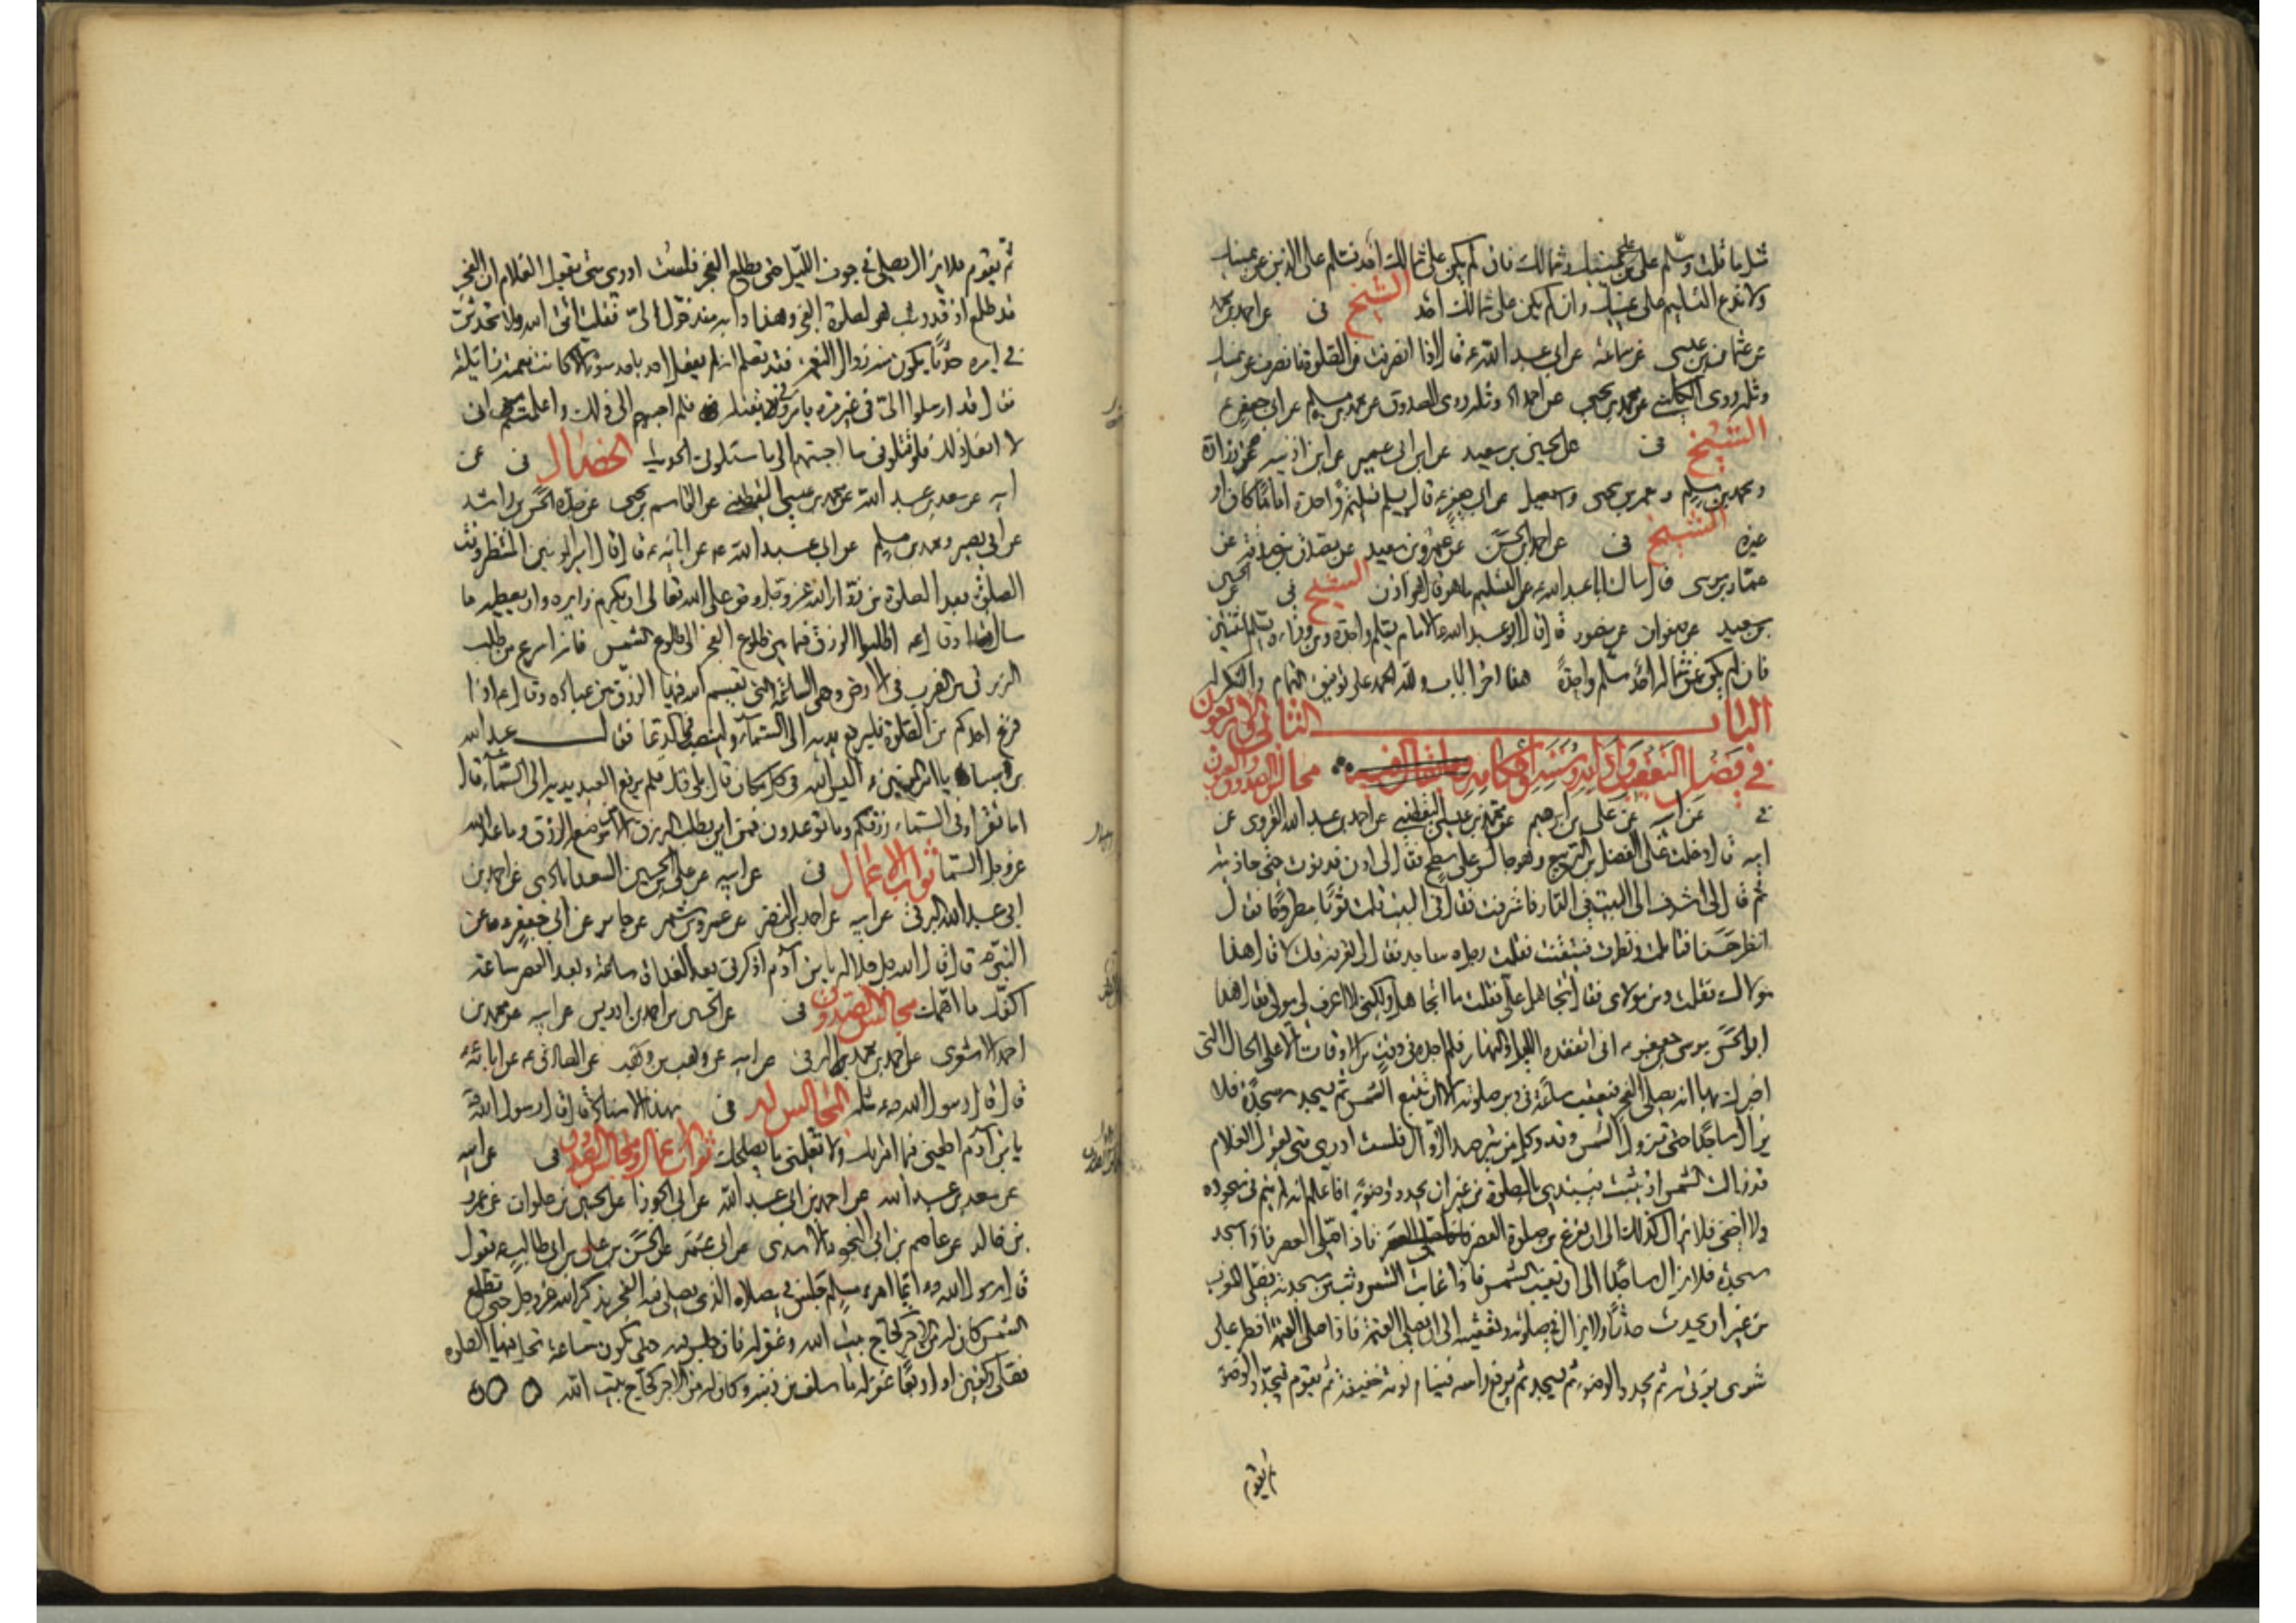 مثل ما قلت وسلم على من على يمينك وشمالك فان لم يكن على شمالك احد فسلم على الذين عن يمينك
ولا تدع التسليم على يمينك وان لم يكن على شمالك احد الشيخ فى عن احمد بن محمد
عن عثمان بن عيسى عن سماعة عن ابى عبد الله ع قال اذا انصرفت من الصلوة فانصرف عن يمينك
ومثله روى الكلينى عن محمد بن يحيى عن احمد ومثله روى الصدوق عن محمد بن مسلم عن ابى جعفر ع
الشيخ فى عن الحسين بن سعيد عن ابن ابى عمير عن ابن اذينه عن زرارة
ومحمد بن مسلم ومعمر بن يحيى واسمعيل عن ابى جعفر ع قال يسلم تسليمة واحدة اماما كان او
غيره الشيخ فى عن احمد بن الحسن عن عمرو بن سعيد عن مصدق بن صدقة عن
عمار بن موسى قال سالت ابا عبد الله ع عن التسليم ما هو قال هو اذن الشيخ فى عن الحسين
بن سعيد عن صفوان عن منصور قال قال ابو عبد الله ع الامام يسلم واحدة ومن وراءه يسلم اثنتين
فان لم يكن عن شماله احد سلم واحدة هذا اخر الباب ولله الحمد على توفيق التمام والشكر له
الباب الثانى والاربعون
فى فضل التعقيب وادابه وسننه واحكامه مجالس الصدوق والعيون
فى عن ابيه عن على بن ابرهيم عن محمد بن عيسى اليقطينى عن احمد بن عبد الله القروى عن
ابيه قال دخلت على الفضل بن الربيع وهو جالس على سطح فقال لى ادن فدنوت حتى حاذيته
ثم قال لى اشرف الى البيت فى الدار فاشرفت فقال ما ترى فى البيت قلت ثوبا مطروحا فقال
انظر حسنا فتاملت ونظرت فتيقنت فقلت رجل ساجد فقال لى تعرفه قلت لا قال هذا
مولاك فقلت ومن مولاى فقال تتجاهل على فقلت ما اتجاهل ولكنى لا اعرف لى مولى فقال هذا
ابو الحسن موسى بن جعفر ع انى اتفقده الليل والنهار فلم اجده فى وقت من الاوقات الا على الحال التى
اخبرك بها انه يصلى الفجر فيعقب ساعة فى دبر صلوته الى ان تطلع الشمس ثم يسجد سجدة فلا
يزال ساجدا حتى تزول الشمس وقد وكل من يترصد الزوال فلست ادرى متى يقول الغلام
قد زالت الشمس اذ يثب فيبتدى بالصلوة من غير ان يجدد وضوء فاعلم انه لم ينم فى سجوده
ولا اغفى فلا يزال كذلك الى ان يفرغ من صلوة العصر فاذا صلى العصر سجد
سجدة فلا يزال ساجدا الى ان تغيب الشمس فاذا غابت الشمس وثب من سجدته فصلى المغرب
من غير ان يحدث حدثا ولا يزال فى صلوته وتعقيبه الى ان يصلى العتمة فاذا صلى العتمة افطر على
شوى يؤتى به ثم يجدد الوضوء ثم يسجد ثم يرفع راسه فينام نومة خفيفة ثم يقوم فيجدد الوضوء
ثم يقوم
ثم يقوم فلا يزال يصلى فى جوف الليل حتى يطلع الفجر فلست ادرى متى يقول الغلام ان الفجر
قد طلع اذ قد وثب هو لصلوة الفجر وهذا دابه منذ حول الى فقلت اتق الله ولا تحدثن
فى امره حدثا يكون منه زوال النعمة فقد تعلم انه لم يفعل احد باحد سوءا الا كانت نعمته زايلة
فقال قد ارسلوا الى فى غير مرة يامرونى بقتله فلم اجبهم الى ذلك واعلمتهم انى
لا افعل ذلك ولو قتلونى ما اجبتهم الى ما سئلونى الحديث الخصال فى عن
ابيه عن سعد بن عبد الله عن محمد بن عيسى اليقطينى عن القاسم بن يحيى عن جده الحسن بن راشد
عن ابى بصير ومحمد بن مسلم عن ابى عبد الله ع عن ابائه ع قال قال امير المؤمنين المنتظر وقت
الصلوة بعد الصلوة من زوار الله عز وجل وحق على الله تعالى ان يكرم زايره وان يعطيه ما
سال وقال ع اطلبوا الرزق فيما بين طلوع الفجر الى طلوع الشمس فانه اسرع من طلب
الرزق من الضرب فى الارض وهى الساعة التى يقسم الله فيها الرزق بين عباده وقال ع اذا
فرغ احدكم من الصلوة فليرفع يديه الى السماء ولينصب فى الدعا فقال عبد الله
بن سبا يا امير المؤمنين اليس الله فى كل مكان قال بلى قال فلم يرفع العبد يديه الى السماء قال
اما تقرا وفى السماء رزقكم وما توعدون فمن اين يطلب الرزق الا من موضع الرزق وما وعد الله
عز وجل السما ثواب الاعمال فى عن ابيه عن على بن الحسين السعدابادى عن احمد بن
ابى عبد الله البرقى عن ابيه عن احمد بن النضر عن عمرو بن شمر عن جابر عن ابى جعفر ع عن
النبى ص قال قال الله جل جلاله يا بن آدم اذكرنى بعد الغداة ساعة وبعد العصر ساعة
اكفك ما اهمك مجالس الصدوق فى عن الحسين بن احمد بن ادريس عن ابيه عن محمد بن
احمد الاشعرى عن احمد بن محمد البرقى عن ابيه عن وهب بن وهب عن الصادق ع عن ابائه ع
قال قال رسول الله ص مثله المجالس له فى بهذا الاسناد قال قال رسول الله ص
يا بن آدم اطعنى فيما امرتك ولا تعلمنى ما يصلحك ثواب الاعمال ومجالس الصدوق فى عن ابيه
عن سعد بن عبد الله عن احمد بن ابى عبد الله عن ابى الجوزا عن الحسين بن علوان عن عمرو
بن خالد عن عاصم بن ابى النجود الاسدى عن ابن عمر عن الحسن بن على بن ابى طالب ع يقول
قال رسول الله ص ايما امرء مسلم جلس فى مصلاه الذى يصلى فيه الفجر يذكر الله عز وجل حتى تطلع
الشمس كان له من الاجر كحاج بيت الله وغفر له فان جلس فيه حتى تكون ساعة تحل فيها الصلوة
فصلى ركعتين او اربعا غفر له ما سلف من ذنبه وكان له من الاجر كحاج بيت الله